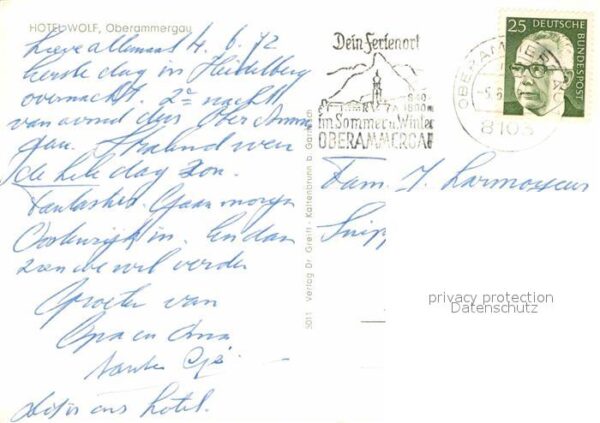 HOTEL WOLF, Oberammergau
Lieve allemaal 4.6.72
Eerste dag in Heidelberg
overnacht. 2e nacht
van avond dus Ober Amme
gau. Stralend weer
de hele dag zon.
Fantastisch. Gaan morgen
Oostenrijk in. En dan
zien we wel verder
Groeten van
Opa en Oma
tante
dit is ons hotel.
5011 Verlag Dr. Greiff - Kaltenbrunn b. Garmisch
Dein Ferienort
840-
im Sommer u. Winter
OBERAMMERGAU
OBERAMMERGAU
-5.6
8103
25 DEUTSCHE
BUNDESPOST
Fam. J. Larmoyeur
privacy protection
Datenschutz